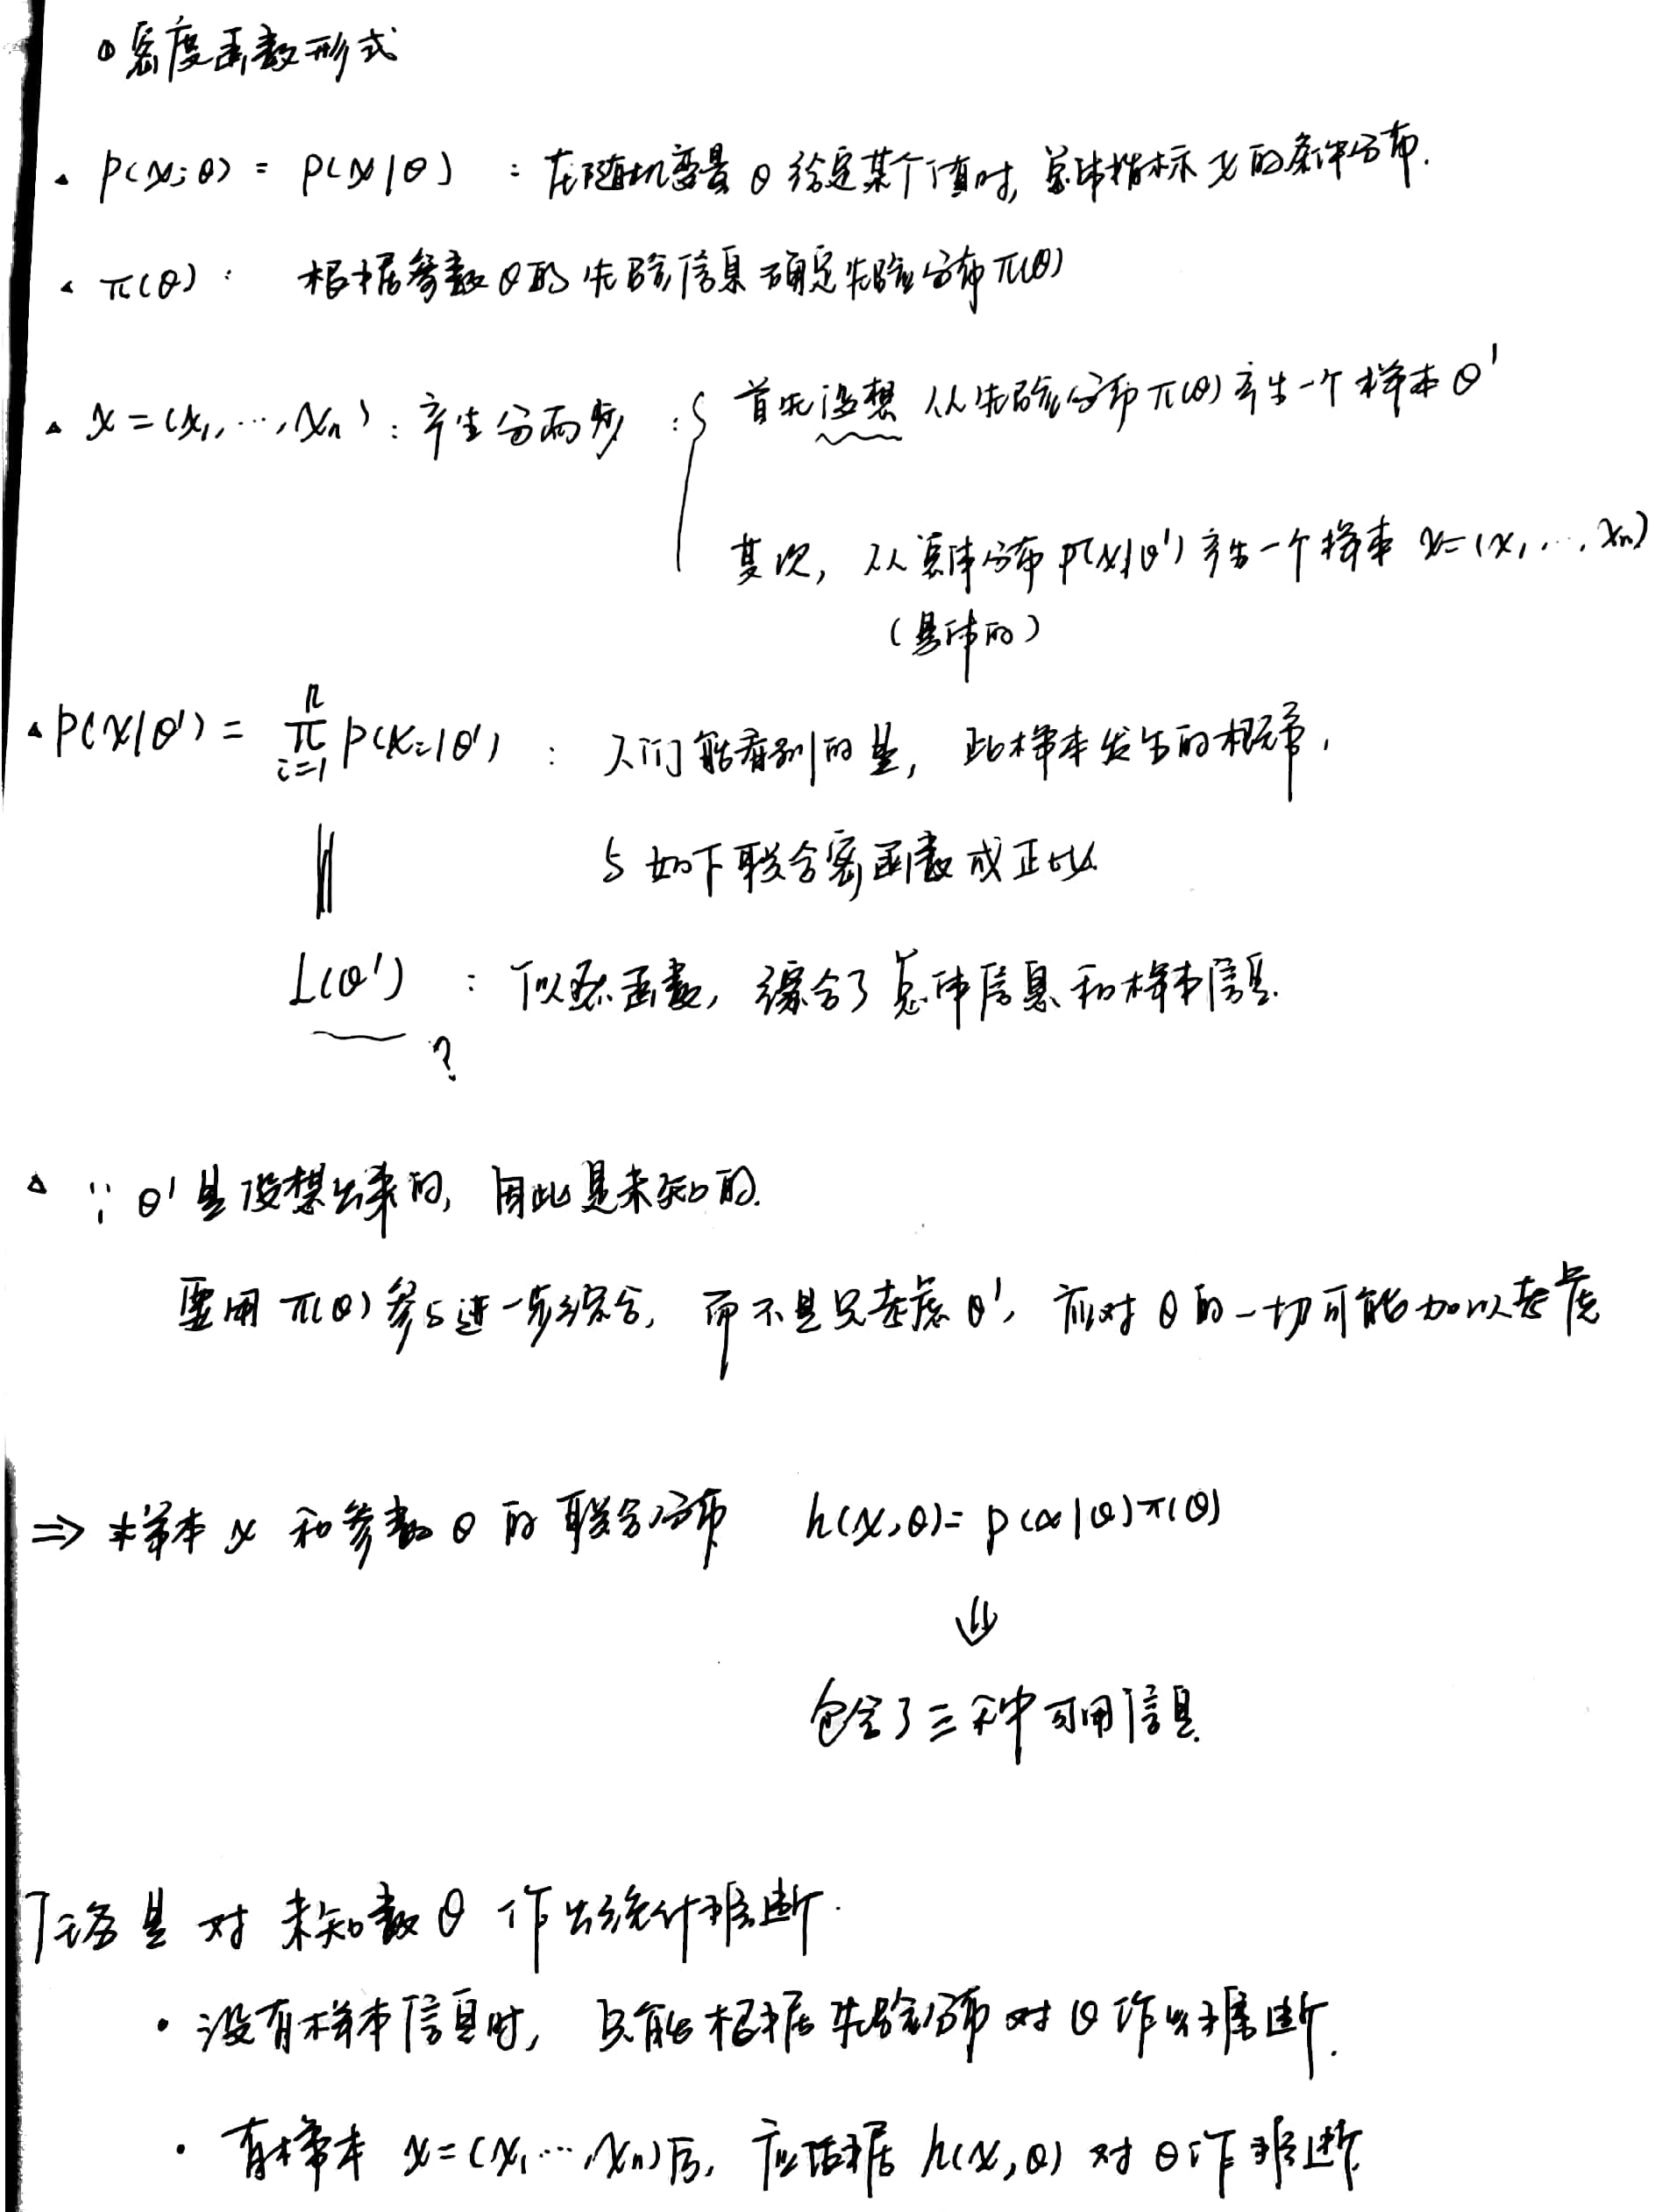 ① 密度函数形式
△ p(x;θ) = p(x|θ) : 在随机变量θ给定某个值时, 总体指标x的条件分布.
△ π(θ): 根据参数θ的先验信息确定先验分布π(θ)
△ x=(x₁,…,xₙ): 产生分两步: { 首先设想从先验分布π(θ)产生一个样本θ'
其次, 从总体分布p(x|θ')产生一个样本 x=(x₁,…,xₙ)
(具体的)
△ p(x|θ') = ∏ᵢ₌₁ⁿ p(xᵢ|θ') : 人们能看到的是, 此样本发生的概率,
|| 与如下联合密函数成正比
L(θ') : 似然函数, 综合了总体信息和样本信息.
?
△ ∵ θ'是设想出来的, 因此是未知的.
要用π(θ)参与进一步综合, 而不是只考虑θ', 应对θ的一切可能加以考虑
⇒ 样本x和参数θ的联合分布 h(x,θ)=p(x|θ)π(θ)
⇓
包含了三种可用信息.
任务是对未知数θ作出统计推断.
· 没有样本信息时, 只能根据先验分布对θ作出推断.
· 有样本 x=(x₁…,xₙ)后, 应依据 h(x,θ) 对θ作推断